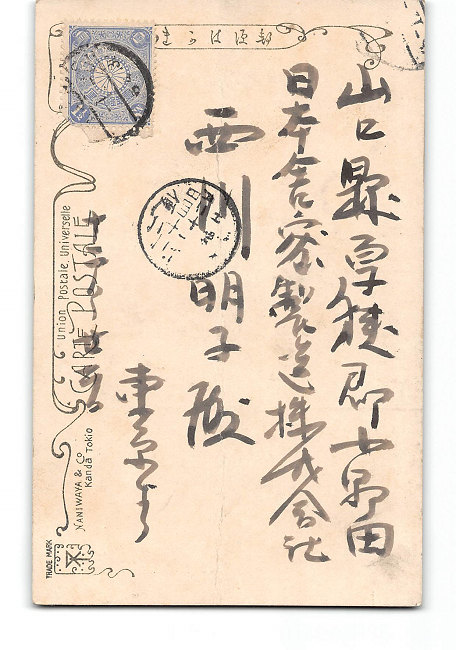 山口縣厚狭郡小野田
日本舎密製造株式会社
西川明子殿
東京より
Union Postale Universelle
CARTE POSTALE
NANIWAYA & Co
Kanda Tokio
TRADE MARK